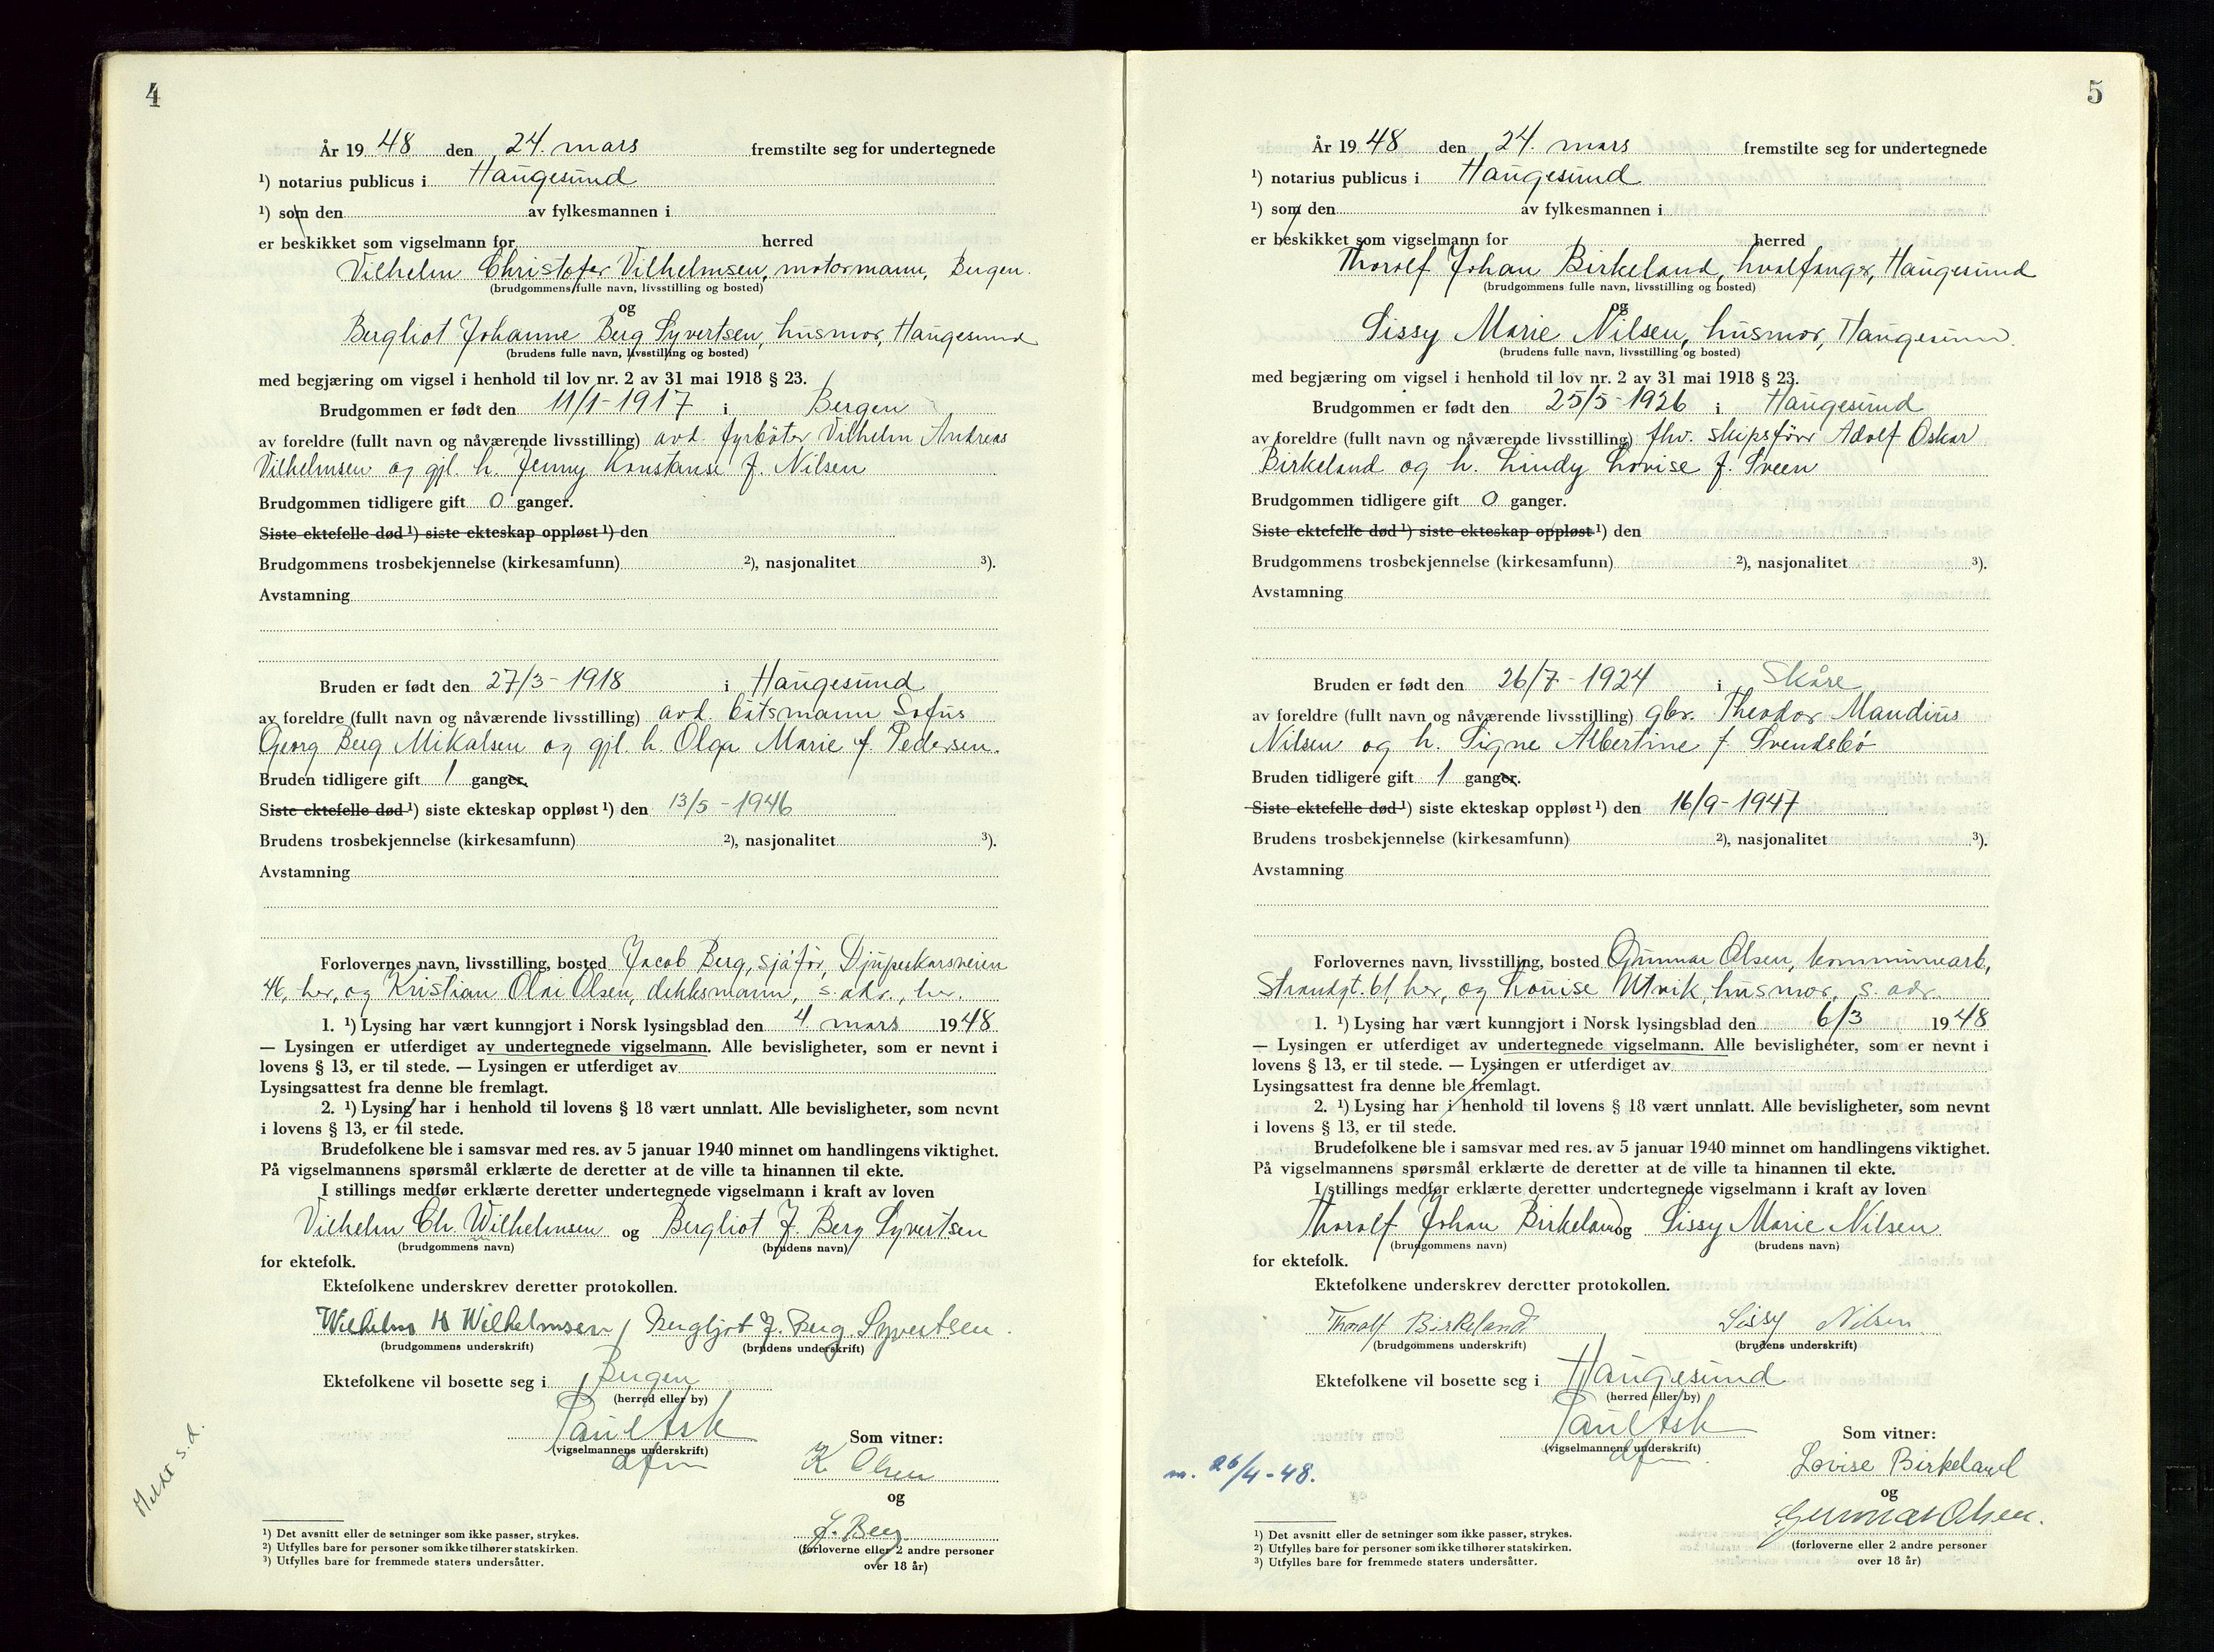 4
År 1948 den 24. mars fremstilte seg for undertegnede
¹) notarius publicus i Haugesund
¹) som den av fylkesmannen i
er beskikket som vigselmann for herred
Vilhelm Christofer Vilhelmsen, motormann, Bergen.
(brudgommens fulle navn, livsstilling og bosted)
og
Bergliot Johanne Berg Syvertsen, husmor, Haugesund
(brudens fulle navn, livsstilling og bosted)
med begjæring om vigsel i henhold til lov nr. 2 av 31 mai 1918 § 23.
Brudgommen er født den 11/1-1917 i Bergen
av foreldre (fullt navn og nåværende livsstilling) avd. fyrbøter Vilhelm Andreas
Vilhelmsen og gjl. h. Jenny Konstanse f. Nilsen
Brudgommen tidligere gift 0 ganger.
Siste ektefelle død ¹) siste ekteskap oppløst ¹) den
Brudgommens trosbekjennelse (kirkesamfunn) ²), nasjonalitet ³).
Avstamning
Bruden er født den 27/3-1918 i Haugesund
av foreldre (fullt navn og nåværende livsstilling) avd. båtsmann Sofus
Georg Berg Mikalsen og gjl. h. Olga Marie f. Pedersen.
Bruden tidligere gift 1 ganger.
Siste ektefelle død ¹) siste ekteskap oppløst ¹) den 13/5-1946
Brudens trosbekjennelse (kirkesamfunn) ²), nasjonalitet ³).
Avstamning
Forlovernes navn, livsstilling, bosted Jacob Berg, sjåfør, Djupaskarsveien
46, her, og Kristian Olai Olsen, dekksmann, s. adr., her.
1. ¹) Lysing har vært kunngjort i Norsk lysingsblad den 4. mars 1948
— Lysingen er utferdiget av undertegnede vigselmann. Alle bevisligheter, som er nevnt i
lovens § 13, er til stede. — Lysingen er utferdiget av
Lysingsattest fra denne ble fremlagt.
2. ¹) Lysing har i henhold til lovens § 18 vært unnlatt. Alle bevisligheter, som nevnt
i lovens § 13, er til stede.
Brudefolkene ble i samsvar med res. av 5 januar 1940 minnet om handlingens viktighet.
På vigselmannens spørsmål erklærte de deretter at de ville ta hinannen til ekte.
I stillings medfør erklærte deretter undertegnede vigselmann i kraft av loven
Vilhelm Ch. Wilhelmsen og Bergliot J. Berg Syvertsen
(brudgommens navn) (brudens navn)
for ektefolk.
Ektefolkene underskrev deretter protokollen.
Wilhelm Wilhelmsen Bergljot J. Berg Syvertsen.
(brudgommens underskrift) (brudens underskrift)
Ektefolkene vil bosette seg i Bergen
(herred eller by)
Paul Ask
(vigselmannens underskrift)
dfm
Som vitner:
K. Olsen
og
J. Berg
(forloverne eller 2 andre personer
over 18 år)
Meldt s.d.
¹) Det avsnitt eller de setninger som ikke passer, strykes.
²) Utfylles bare for personer som ikke tilhører statskirken.
³) Utfylles bare for fremmede staters undersåtter.
5
År 1948 den 24. mars fremstilte seg for undertegnede
¹) notarius publicus i Haugesund
¹) som den av fylkesmannen i
er beskikket som vigselmann for herred
Thoralf Johan Birkeland, hvalfanger, Haugesund
(brudgommens fulle navn, livsstilling og bosted)
og
Sissy Marie Nilsen, husmor, Haugesund.
(brudens fulle navn, livsstilling og bosted)
med begjæring om vigsel i henhold til lov nr. 2 av 31 mai 1918 § 23.
Brudgommen er født den 25/5-1926 i Haugesund
av foreldre (fullt navn og nåværende livsstilling) fhv. skipsfører Adolf Oskar
Birkeland og h. Lindy Lovise f. Sveen
Brudgommen tidligere gift 0 ganger.
Siste ektefelle død ¹) siste ekteskap oppløst ¹) den
Brudgommens trosbekjennelse (kirkesamfunn) ²), nasjonalitet ³).
Avstamning
Bruden er født den 26/7-1924 i Skåre
av foreldre (fullt navn og nåværende livsstilling) gbr. Theodor Mandius
Nilsen og h. Signe Albertine f. Svendsbø
Bruden tidligere gift 1 ganger.
Siste ektefelle død ¹) siste ekteskap oppløst ¹) den 16/9-1947
Brudens trosbekjennelse (kirkesamfunn) ²), nasjonalitet ³).
Avstamning
Forlovernes navn, livsstilling, bosted Gunnar Olsen, kommunearb,
Strandgt. 61, her, og Louise Utvik, husmor, s. adr.
1. ¹) Lysing har vært kunngjort i Norsk lysingsblad den 6/3 1948
— Lysingen er utferdiget av undertegnede vigselmann. Alle bevisligheter, som er nevnt i
lovens § 13, er til stede. — Lysingen er utferdiget av
Lysingsattest fra denne ble fremlagt.
2. ¹) Lysing har i henhold til lovens § 18 vært unnlatt. Alle bevisligheter, som nevnt
i lovens § 13, er til stede.
Brudefolkene ble i samsvar med res. av 5 januar 1940 minnet om handlingens viktighet.
På vigselmannens spørsmål erklærte de deretter at de ville ta hinannen til ekte.
I stillings medfør erklærte deretter undertegnede vigselmann i kraft av loven
Thoralf Johan Birkeland og Sissy Marie Nilsen
(brudgommens navn) (brudens navn)
for ektefolk.
Ektefolkene underskrev deretter protokollen.
Thoralf Birkeland Sissy Nilsen
(brudgommens underskrift) (brudens underskrift)
Ektefolkene vil bosette seg i Haugesund
(herred eller by)
Paul Ask
(vigselmannens underskrift)
dfm
Som vitner:
Lovise Birkeland
og
Gunnar Olsen.
(forloverne eller 2 andre personer
over 18 år)
m. 26/4-48.
¹) Det avsnitt eller de setninger som ikke passer, strykes.
²) Utfylles bare for personer som ikke tilhører statskirken.
³) Utfylles bare for fremmede staters undersåtter.